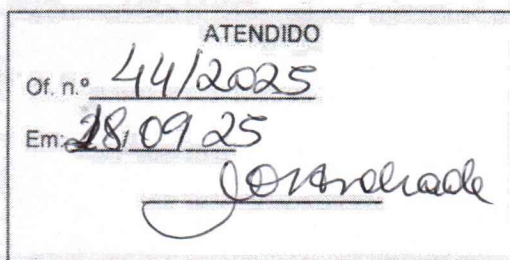 ATENDIDO
Of. n.º 44/2025
Em: 28/09/25